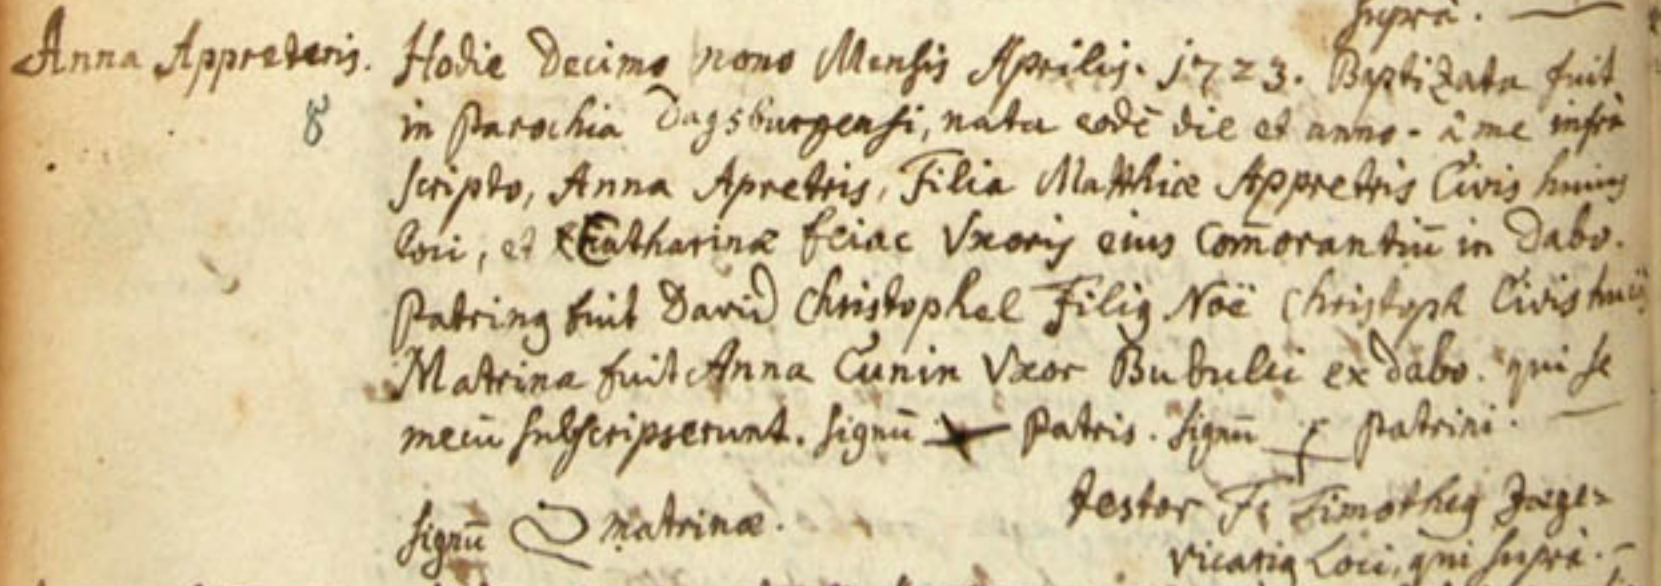 supra.
Anna Appreteris. Hodie Decimo nono Mensis Aprilis. 1723. Baptizata fuit
8 in Parochia Dagsburgensi, nata eodē die et anno - à me infra
scripto, Anna Apretris, Filia Matthiæ Appretris Civis huius
loci, et Catharinæ Uxoris eius Com̄orantiū in Dabo.
Patrinus fuit David Christophel Filius Noë Christoph Civis huius
Matrina fuit Anna Cunin Uxor Bubulci ex Dabo. qui se
mecū subscripserunt. Signū Patris. Signū Patrini.
Signū Matrinæ. Testor Fr Timotheus Jæge=
Vicarius Loci, qui supra.